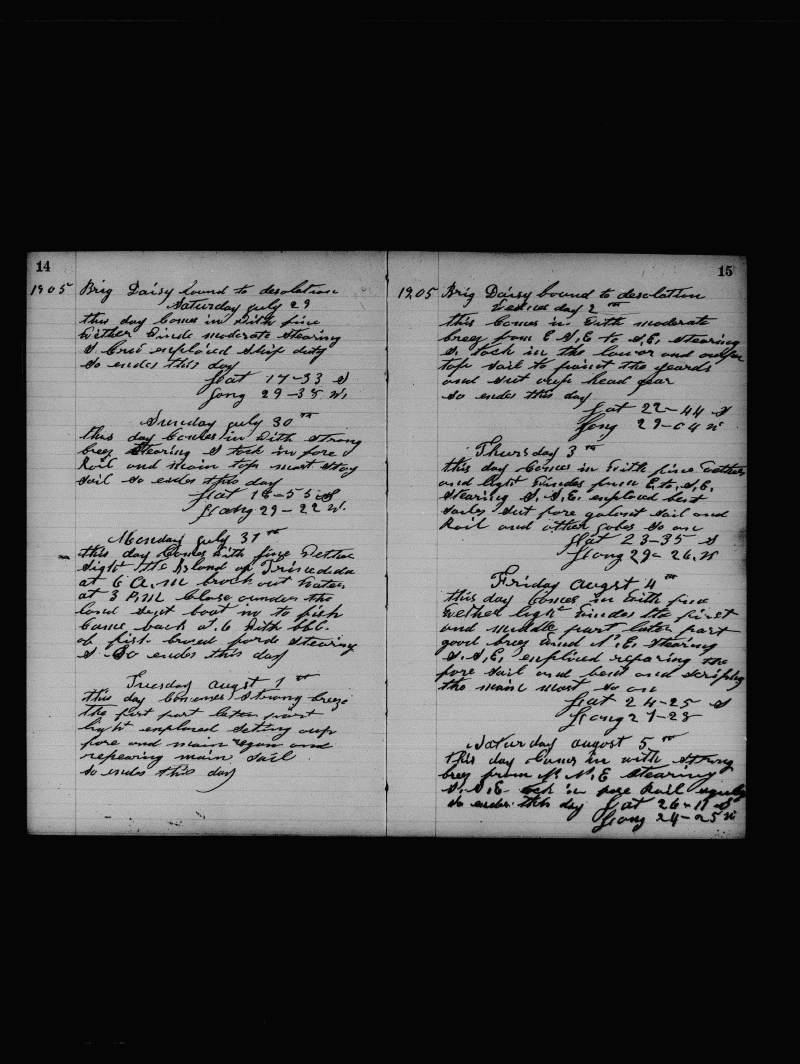 14
1905 Brig Daisy bound to desolation
Saturday July 29
this day Comes in With fine
Wether Winds moderate Stearing
S Crue employed Ship duty
So endes this day
Lat 17-33 S
Long 29-35 W.
Sunday July 30th
this day Comes in With Strong
breez Stearing S tock in fore
Roil and Main top mast Stay
Sail So endes this day
Lat 18-55 S
Long 29-22 W.
Monday July 31th
this day Comes With fine Wether
Sight the Island of Trinedida
at 6 A.M brock out Water
at 3 P.M Close ounder the
land Sent boat in to fish
Came back at 6 With bbl.
of fish braced forde Stearing
S. So endes this day
Tuesday augst 1th
this day Comenes Strong breze
the first part later part
light employed Seting oup
fore and main and
repearing main Sail
So endes this day
15
1905 Brig Daisy bound to desolation
day 2th
this Comes in With moderate
breez from E.S.E to S.E. Stearing
S. tock in the lowor and
top Sail to the yards
and Sut oup head gear
So endes this day
Lat 22-44 S
Long 29-04 W
Thursday 3th
this day Comes in With fine Wether
and light Windes from E. to. S.E.
Stearing S.S.E. employed bent
Sailes Sut fore galont Sail and
Roil and other Jobes So on
Lat 23-35 S
Long 29-26. W
Friday augst 4th
this day Comes in With fine
Wether light Windes the first
and middle part later part
good breez Wind N.E. Stearing
S.S.E. employed reparing the
fore Sail and bent and
the main mast So on
Lat 24-25 S
Long 27-28
Saturday august 5th
this day Comes in with Strong
breez from N.N.E Stearing
S.S.E. tock in fore Roil
So endes this day Lat 26-11 S
Long 24-25 W